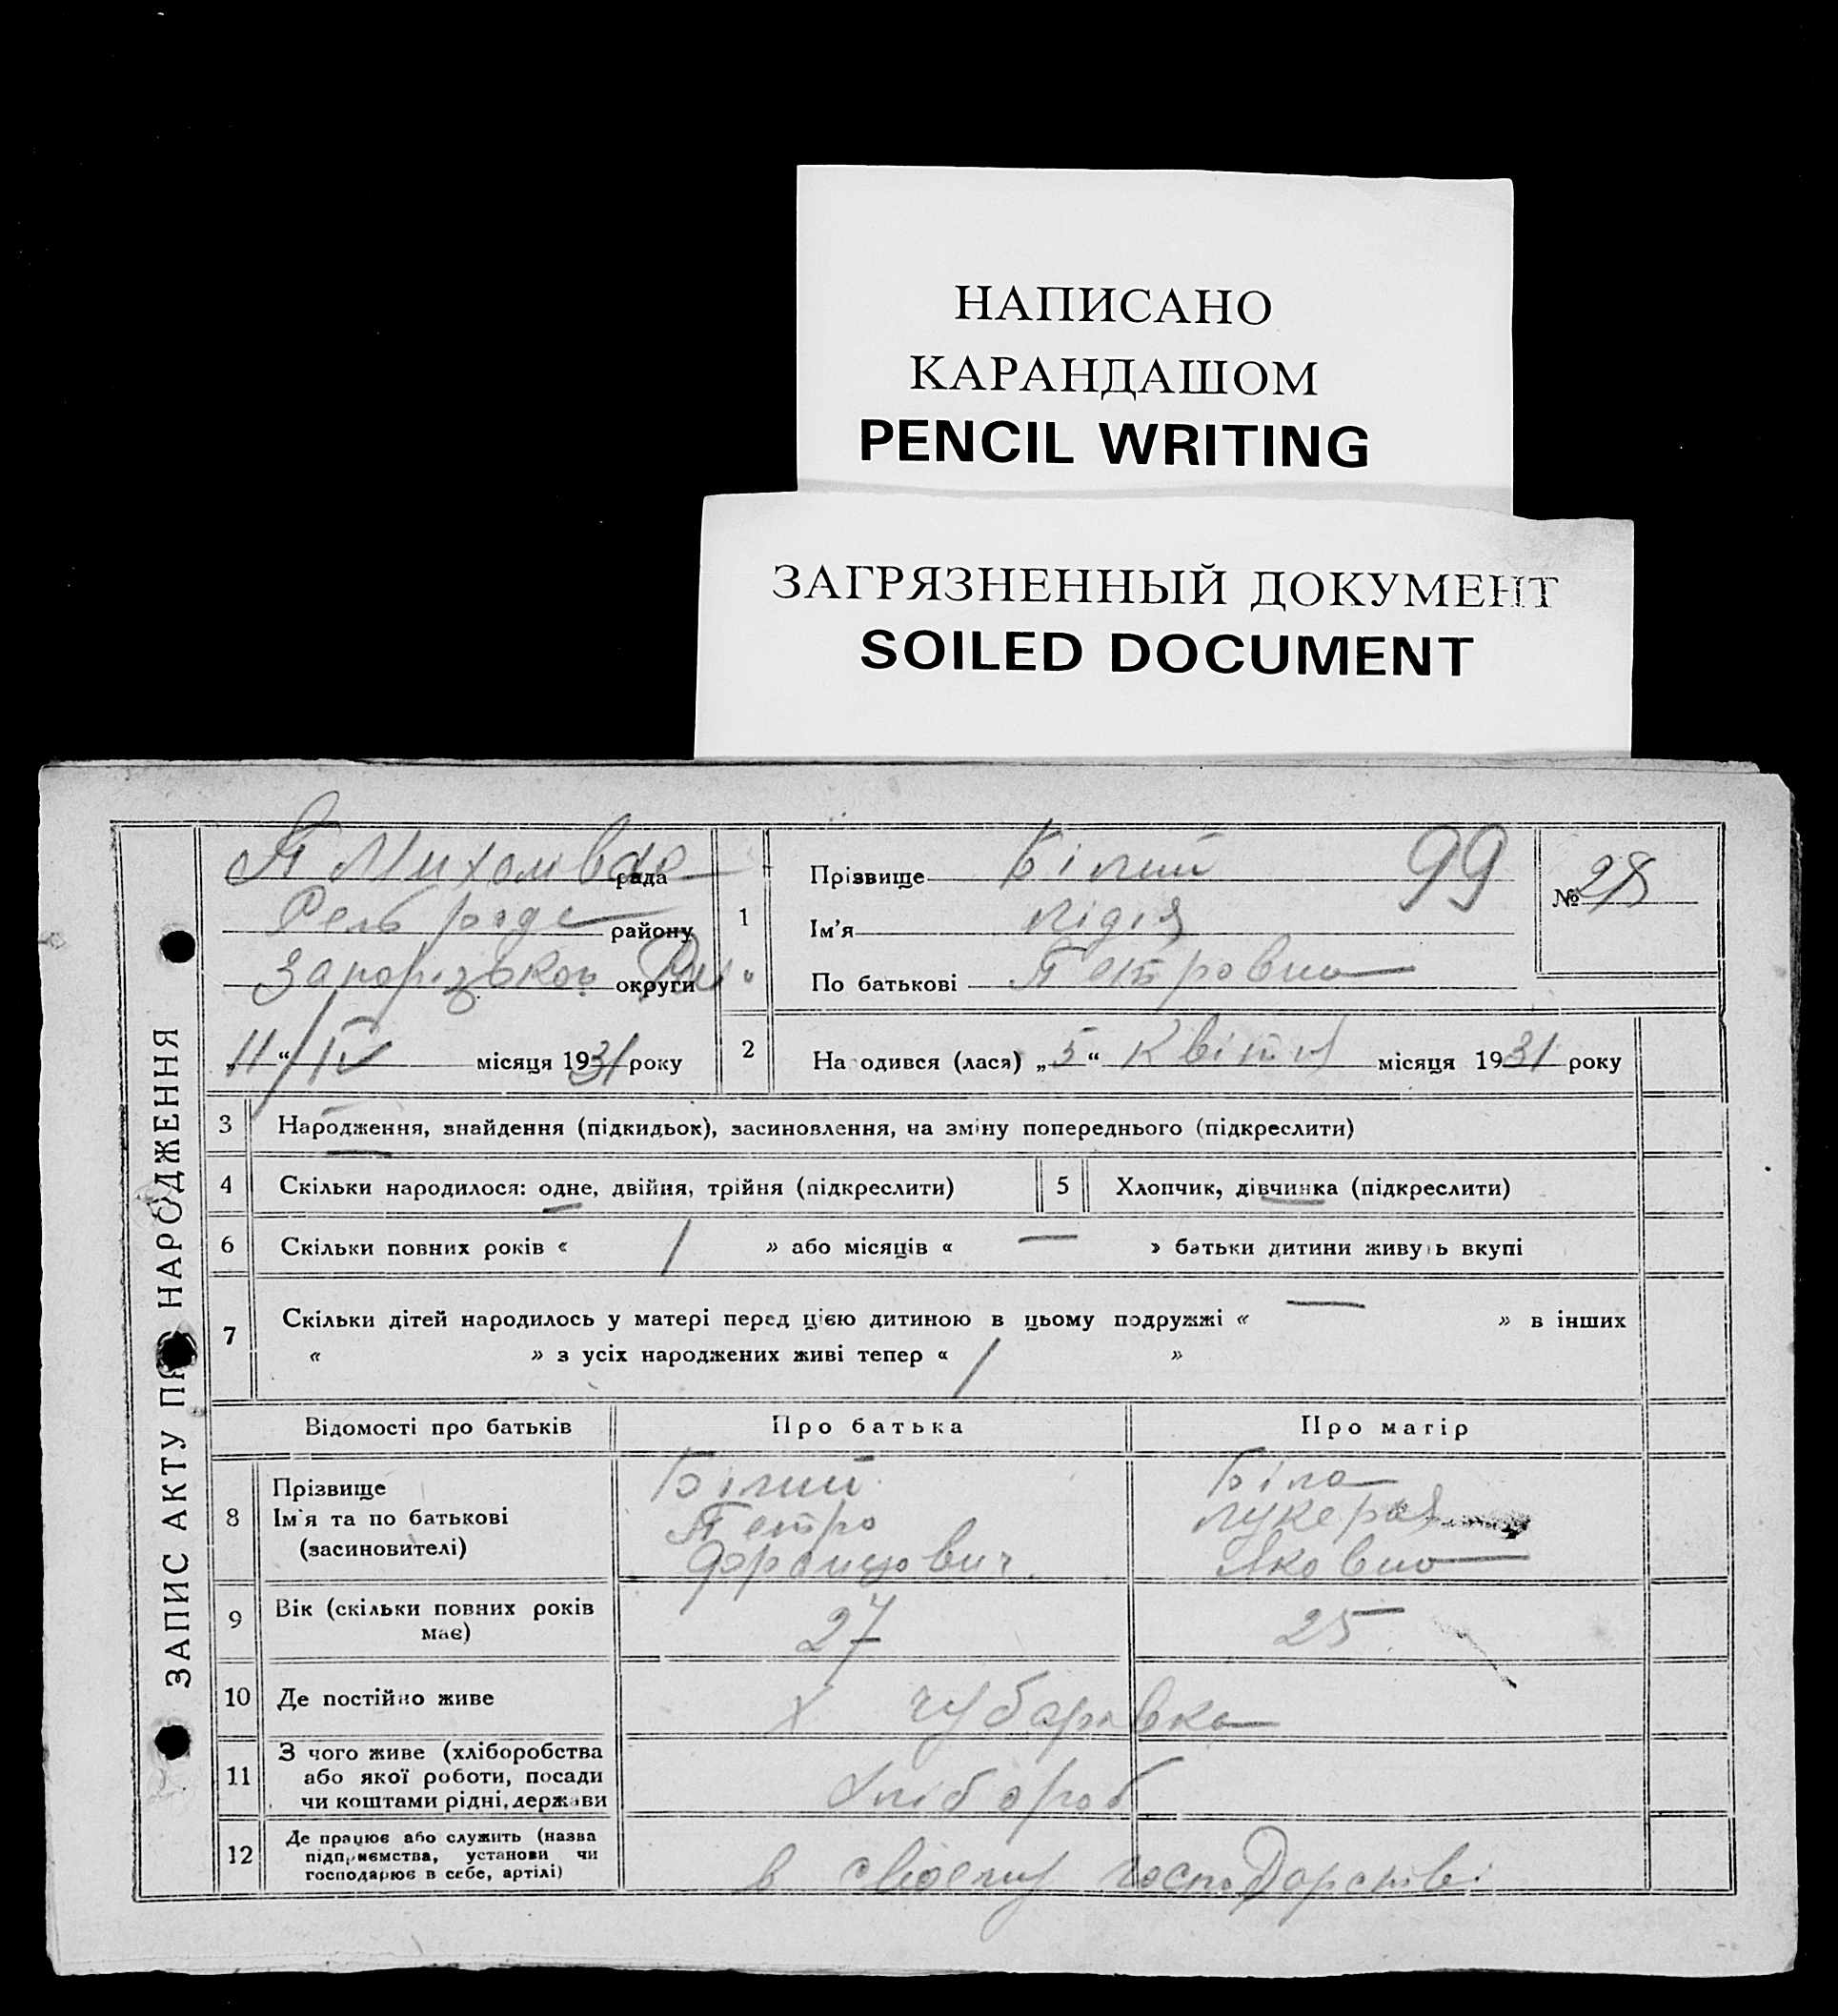 НАПИСАНО
КАРАНДАШОМ
PENCIL WRITING
ЗАГРЯЗНЕННЫЙ ДОКУМЕНТ
SOILED DOCUMENT
ЗАПИС АКТУ ПРО НАРОДЖЕННЯ
рада
району
Запорізькой округи
„11“ IV місяця 1931 року
1
Прізвище Білий
99
№ 28
Ім'я Лідія
По батькові Петровна
2
Народився (лася) „5“ Квітня місяця 1931 року
3 Народження, знайдення (підкидьок), засиновлення, на зміну попереднього (підкреслити)
4 Скільки народилося: одне, двійня, трійня (підкреслити)
5 Хлопчик, дівчинка (підкреслити)
6 Скільки повних років « 1 » або місяців « — » батьки дитини живуть вкупі
7 Скільки дітей народилось у матері перед цією дитиною в цьому подружжі « — » в інших
« » з усіх народжених живі тепер « 1 »
Відомості про батьків Про батька Про матір
8 Прізвище
Ім'я та по батькові
(засиновителі)
Білий
Петро
Францович
Біла
Лукерья
Яковна
9 Вік (скільки повних років
має)
27 25
10 Де постійно живе
х Чубаровка
11 З чого живе (хліборобства
або якої роботи, посади
чи коштами рідні, держави
Хлібороб
12 Де працює або служить (назва
підприємства, установи чи
господарює в себе, артілі)
в своему господарстві